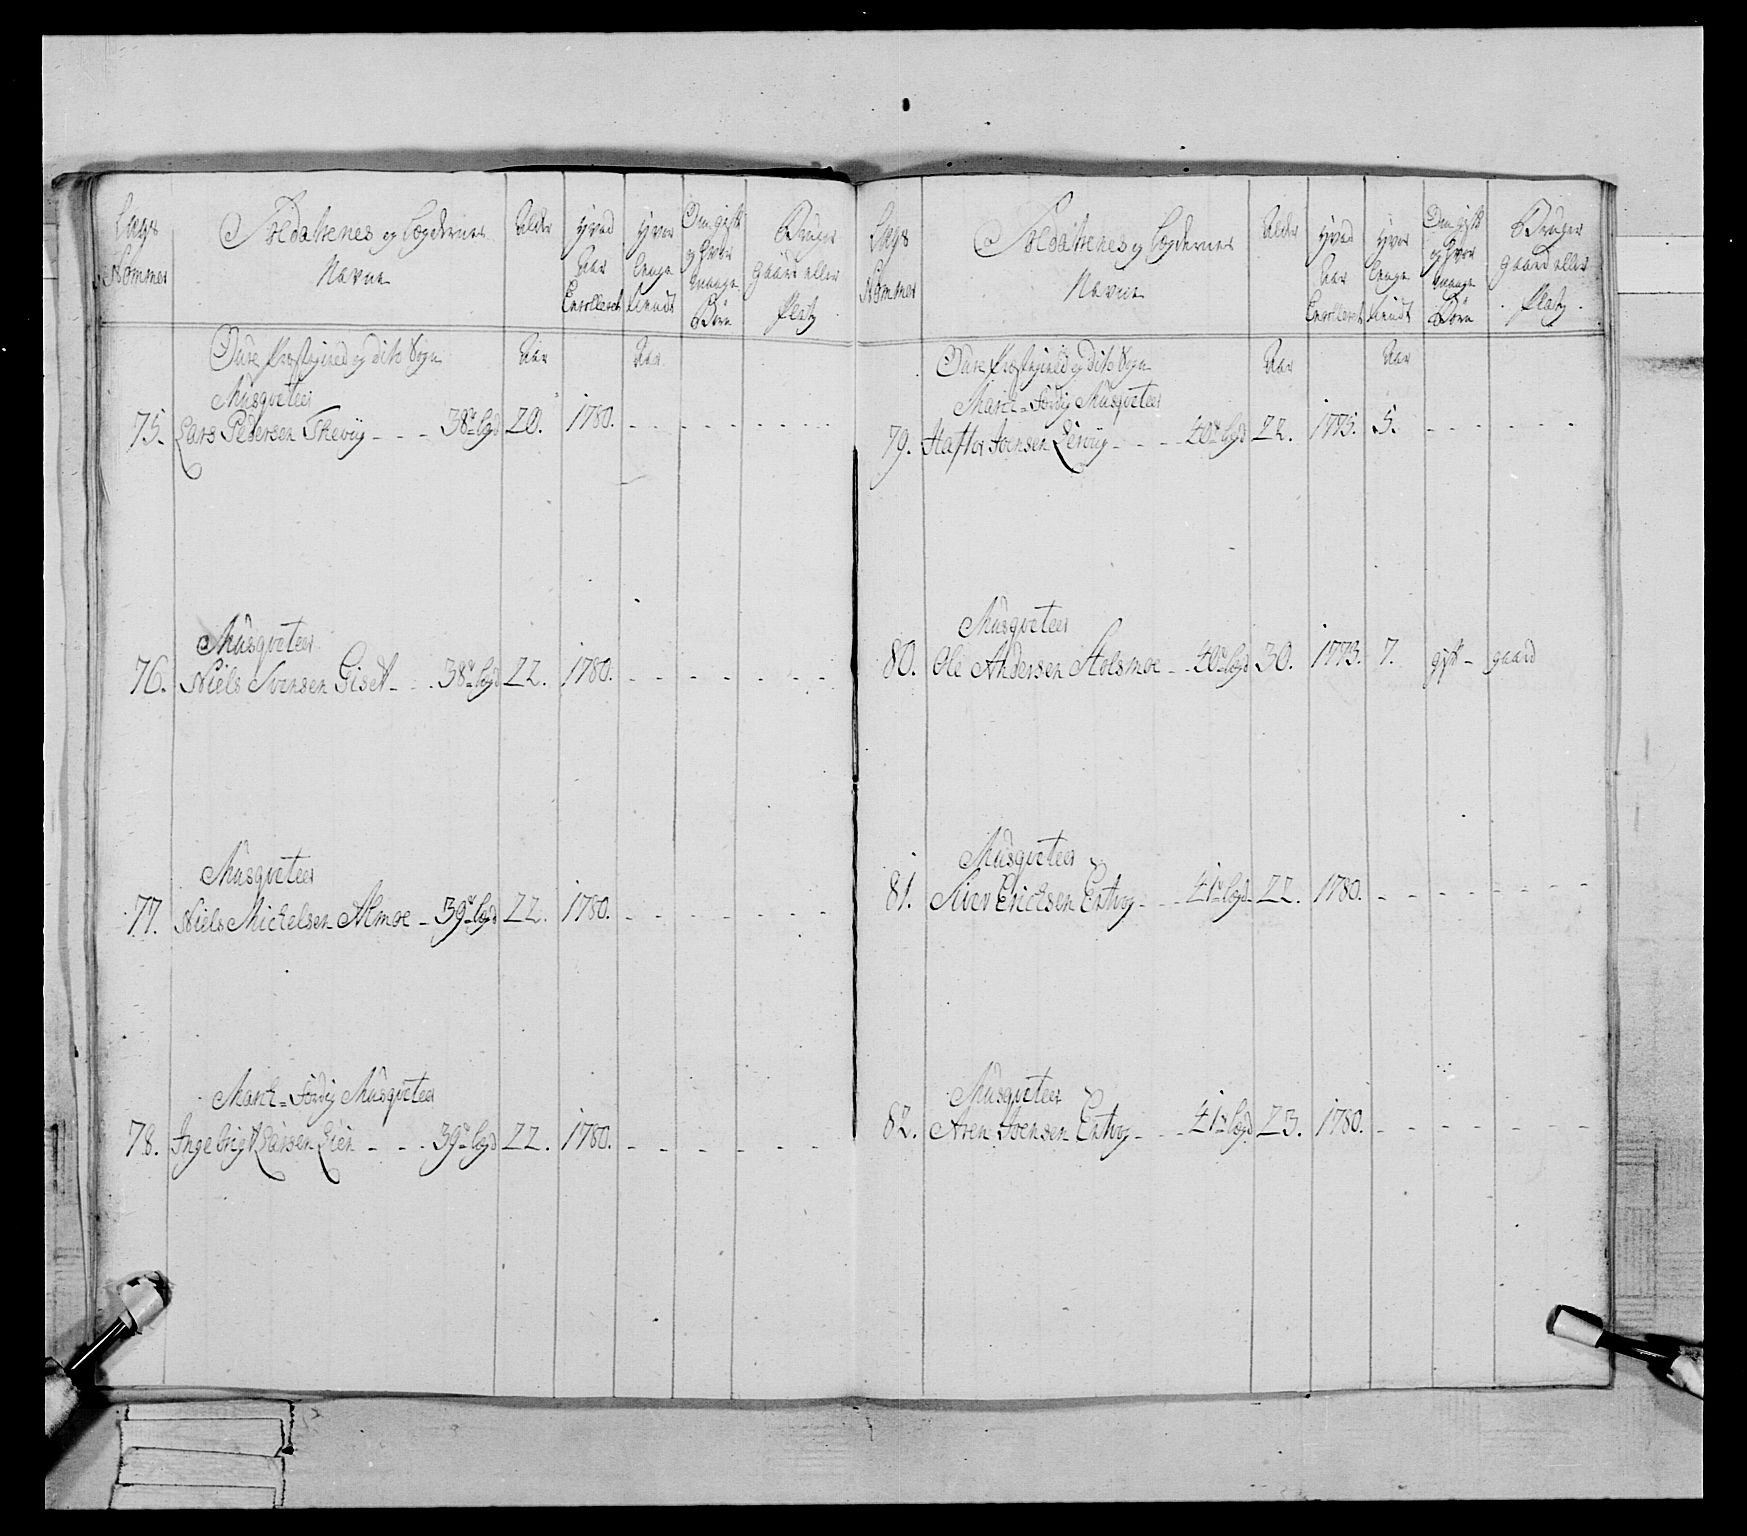 Lægs Nommer
Soldatternes og Lægdernes Navne
Alder
Hvad Aar Enrolleret
Hvor lenge tiendt
Om gift og hvor mange Børn
Bruger gaard eller Platz
Oure Præstegield og dito Sogn
Aar
Aar
Musqveteer
75. Lars Pedersen - - - 38te lægd 20. 1780. - - - - - - -
Musqveteer
76. Niels Svensen Giset - - . 38te lægd 22. 1780. - - - - - - -
Musqveteer
77. Niels Mickelsen Almoe - 39te lægd 22. 1780. - - - - - - -
March-Færdig Musqveteer
78. Ingebrigt Larsen Lien - - . 39te lægd 22. 1780. - - - - - -
Lægs Nommer
Soldatternes og Lægdernes Navne
Alder
Hvad Aar Enrolleret
Hvor lenge tiendt
Om gift og hvor mange Børn
Bruger gaard eller Platz
Oure Præstegield og dito Sogn
Aar
Aar
March-Færdig Musqveteer
79. Haftor Joensen - - - - 40te lægd 22. 1775. 5. - - - - - -
Musqveteer
80. Ole Andersen Holsmoe - . 40te lægd 30. 1773. 7. gift - gaard
Musqveteer
81. Siver Ericksen - - - 41te lægd 22. 1780. - - - - - - - -
Musqveteer
82. Aren Joensen - - - 41te lægd 23. 1780. - - - - - - -